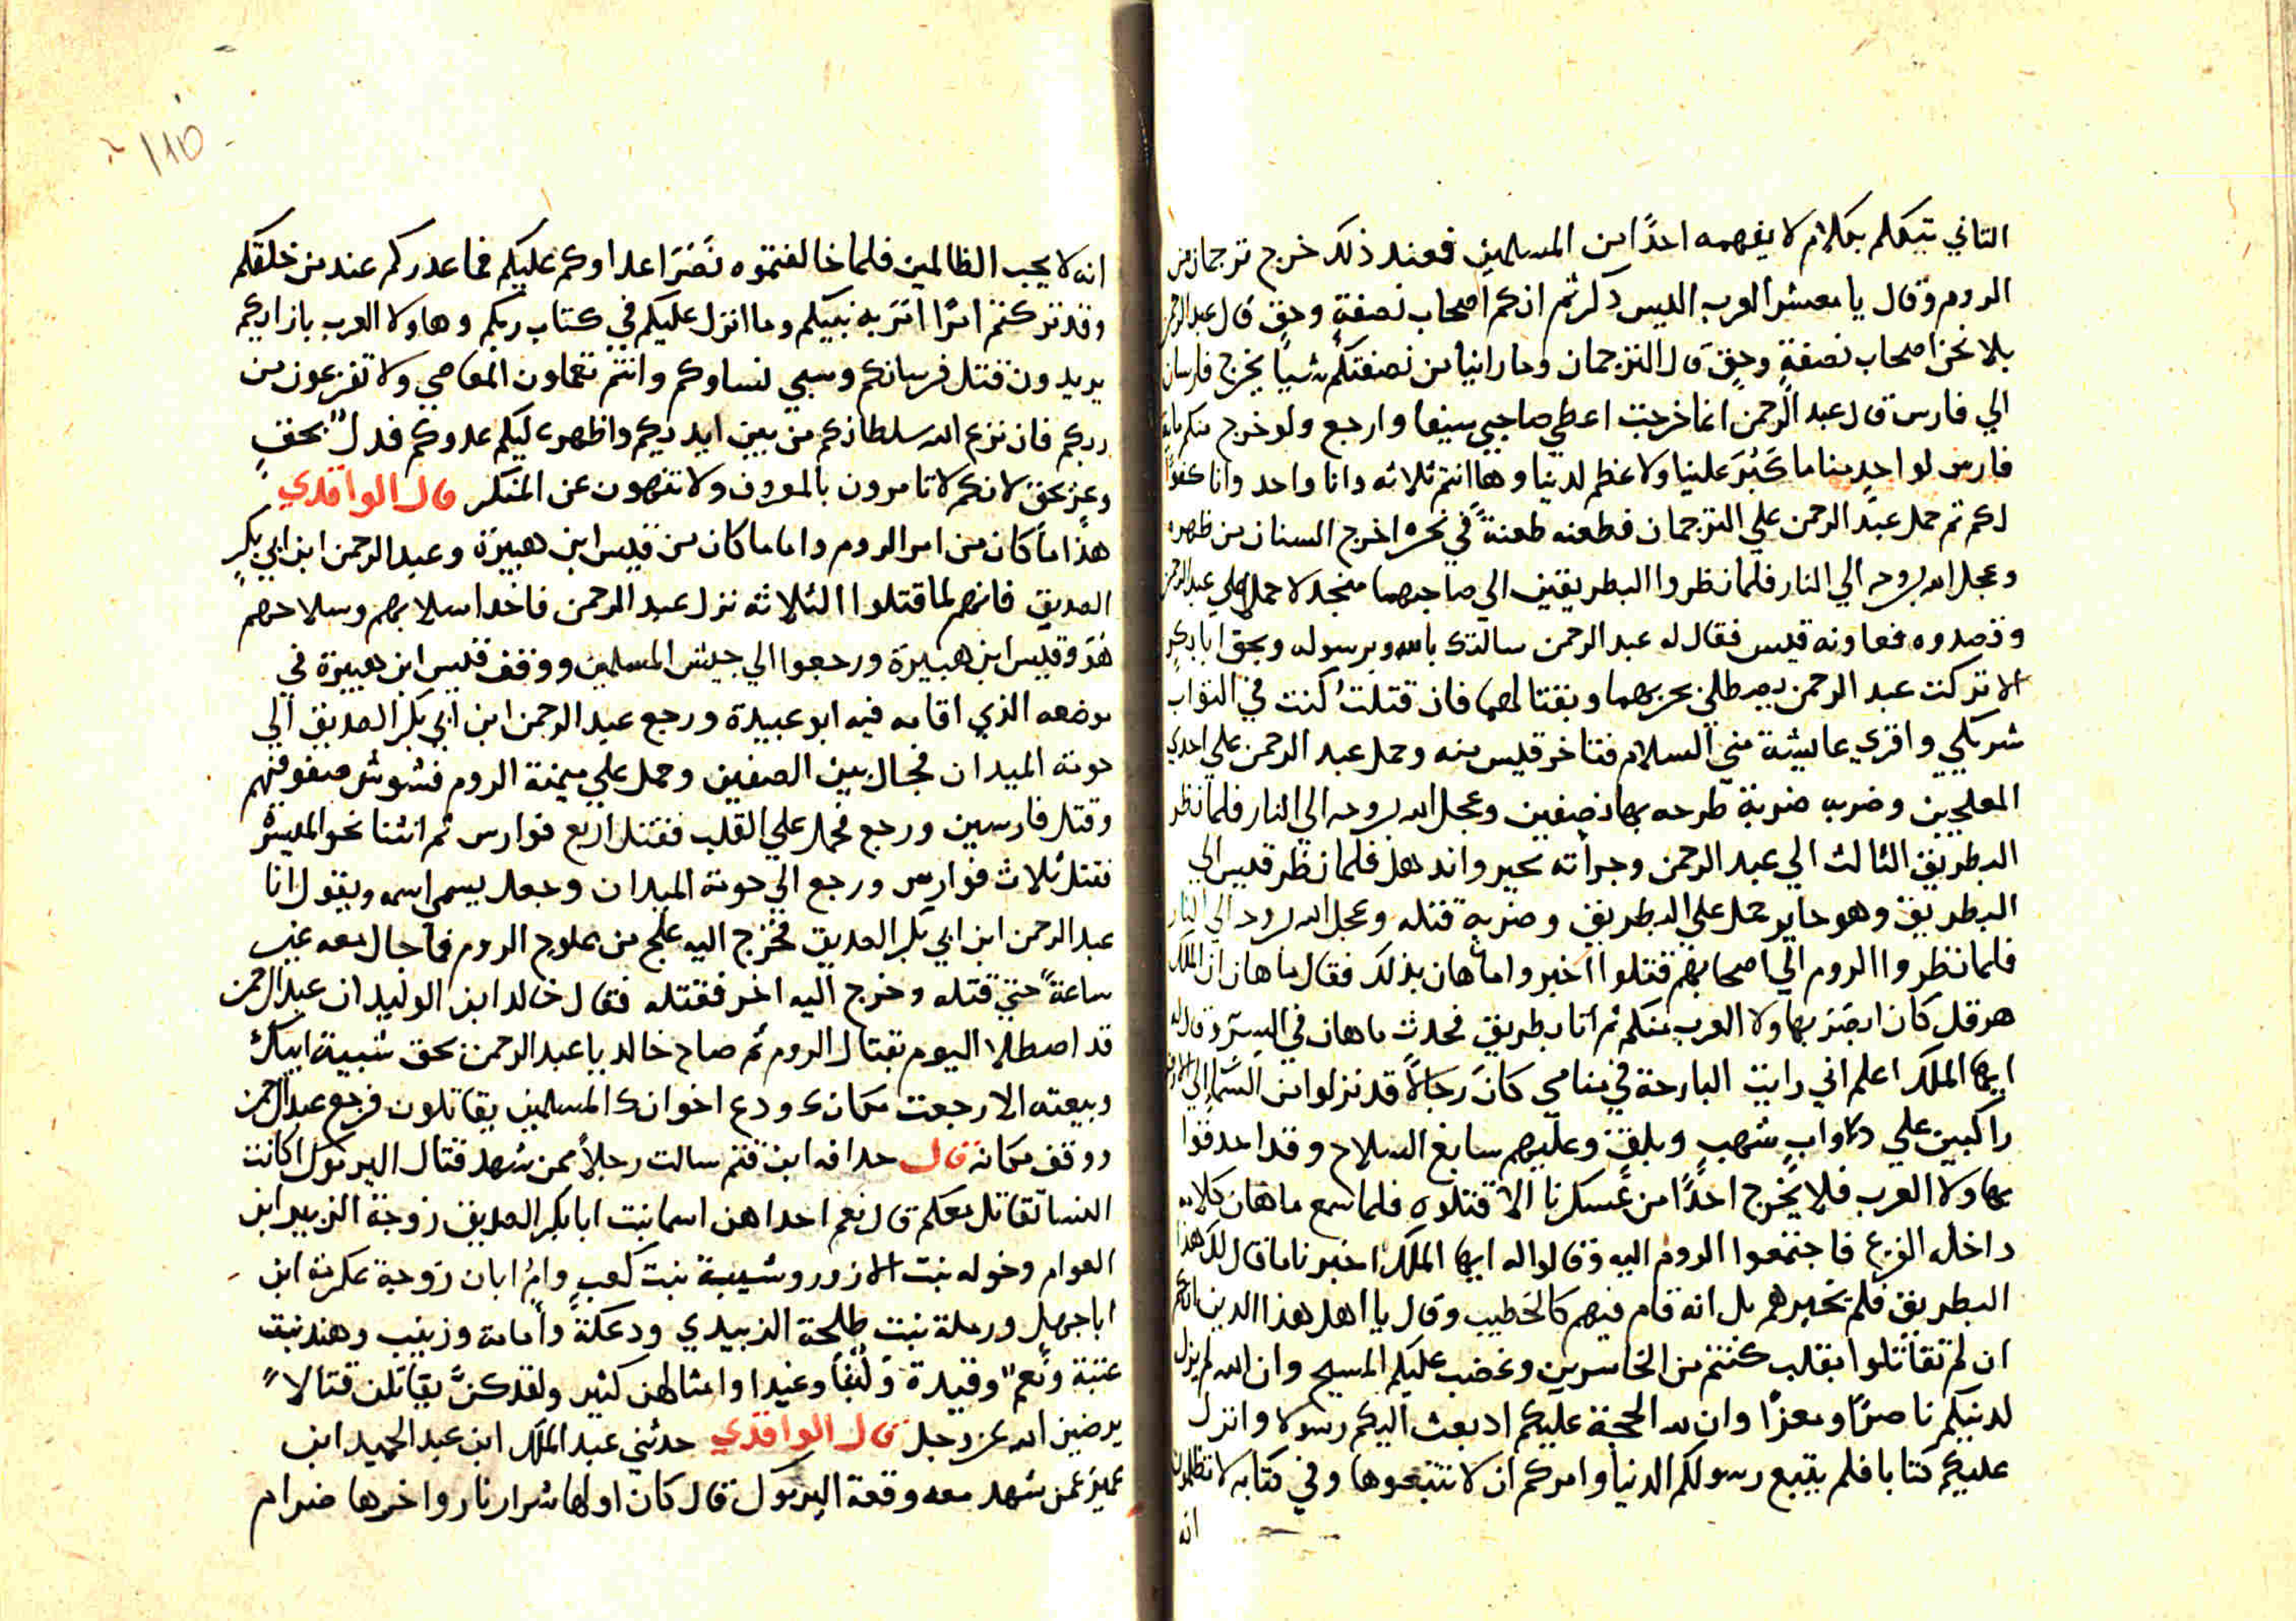 الثاني يتكلم بكلام لا يفهمه احدًا من المسلمين فعند ذلك خرج ترجمان من
الروم وقال يا معشر العرب اليس ذكرتم انكم اصحاب نصفةٍ وحقٍ قال عبد الرحمن
بلا نحن اصحاب نصفةٍ وحقٍ قال الترجمان وما راينا من نصفتكم شيا يخرج فارسان
الي فارس قال عبد الرحمن انما خرجت اعطي صاحبي سيفا وارجع ولو خرج منكم ماية
فارس لواحدٍ منا ما كَبُرَ علينا ولا عظم لدينا وها انتم ثلاثه وانا واحد وانا كفوًا
لكم ثم حمل عبد الرحمن علي الترجمان فطعنه طعنةً في نحره اخرج السنان من ظهره
وعجل الله بروحه الي النار فلما نظروا البطريقين الي صاحبهما منجدلا حملا علي عبد الرحمن
وقصدوه فعاونه قيس فقال له عبد الرحمن سالتك بالله وبرسوله وبحق ابا بكرٍ
الا تركت عبد الرحمن يصطلي بحربهما وبقتالهما فان قتلتُ كنت في الثواب
شريكي واقري عايشة مني السلام فتاخر قيس منه وحمل عبد الرحمن علي احدي
العلجين وضربه ضربة طرحه بها نصفين وعجل الله بروحه الي النار فلما نظر
البطريق الثالث الي عبد الرحمن وجراته تحير واندهل فلما نظر قيس الي
البطريق وهو حاير حمل علي البطريق وضربه قتله وعجل الله بروحه الي النار
فلما نظروا الروم الي اصحابهم قتلوا اخبروا ماهان بذلك فقال ماهان ان الملك
هرقل كان ابصر بهاولا العرب منكم ثم اتا بطريق فحدث ماهان في السِر وقال له
ايها الملك اعلم اني رايت البارحة في منامي كانَ رجالاً قد نزلوا من السَما الي الارض
راكبين علي دواب شهبٍ وبلقٍ وعليهم سابغ السلاح وقد احدقوا
بهاولا العرب فلا يخرج احدًا من عسكرنا الا قتلوه فلما سمع ماهان كلامه
داخله الفزع فاجتمعوا الروم اليه وقالوا له ايها الملك اخبرنا ما قال لك هذا
البطريق فلم يخبرهم بل انه قام فيهم كالخطيب وقال يا اهل هذا الدين انكم
ان لم تقاتلوا بقلب كنتم من الخاسرين وغضب عليكم المسيح وان الله لم يزل
لدينكم ناصرًا ومعزًا وان لله الحجة عليكم اد بعث اليكم رسولا وانزل
عليكم كتابا فلم يتبع رسولكم الدنيا وامركم ان لا تتبعوها وفي كتابه لا تظلموا
انه
١١٥
انه لا يحب الظالمين فلما خالفتموه نَصَرَ اعداوكم عليكم فما عدركم عند من خلقكم
وقد تركتم امرًا اتى به نبيكم وما انزل عليكم في كتاب ربكم وهاولا العرب بازايكم
يريدون قتل فرسانكم وسبي نساوكم وانتم تعملون المعاصي ولا تفزعون من
ربكم فان نزع الله سلطانكم من بين ايديكم واظهر عليكم عدوكم فدلك بحقٍ
وعن حق لانكم لا تامرون بالمعروف ولا تنهون عن المنكر قال الواقدي
هذا ما كان من امر الروم واما ما كان من قيس ابن هبيرة وعبد الرحمن ابن ابي بكرٍ
الصديق فانهم لما قتلوا الثلاثه نزل عبد الرحمن فاخد اسلابهم وسلاحهم
هو وقيس ابن هبيرة ورجعوا الي جيش المسلمين ووقف قيس ابن هبيرة في
موضعه الذي اقامه فيه ابو عبيدة ورجع عبد الرحمن ابن ابي بكر الصديق الي
حومة الميدان فجال بين الصفين وحمل علي ميمنة الروم فشوش صفوفهم
وقتل فارسين ورجع فحمل علي القلب فقتل اربع فوارس ثم انثنا نحو الميسرة
فقتل ثلاث فوارس ورجع الي حومة الميدان وجعل يسمي اسمه ويقول انا
عبد الرحمن ابن ابي بكر الصديق فخرج اليه علج من علوج الروم فما جال معه غير
ساعةً حتي قتله وخرج اليه اخر فقتله فقال خالد ابن الوليد ان عبد الرحمن
قد اصطلا اليوم بقتال الروم ثم صاح خالد يا عبد الرحمن بحق شيبة ابيك
وبيعته الا رجعت مكانك ودع اخوانك المسلمين يقاتلون فرجع عبد الرحمن
ووقف مكانه قال حدافه ابن قثم سالت رجلاً ممن شهد قتال اليرموك اكانت
النسا تقاتل معكم قال نعم احداهن اسما بنت ابا بكر الصديق زوجة الزبير ابن
العوام وخوله بنت الازور وشيبة بنت كعبٍ وامُ ابان زوجة عكرمة ابن
ابا جهل ورملة بنت طلحة الزبيدي ودعكةَ وأمامة وزينب وهند بنت
عتبة ونعم وقيدة ولُبنا وغيدا وامثالهن كثير ولقد كنَّ يقاتلن قتالاً
يرضين الله عز وجل قال الواقدي حدثني عبد الملك ابن عبد الحميد ابن
عمير عمن شهد معه وقعة اليرموك قال كان اولها شرار نار واخرها ضرام